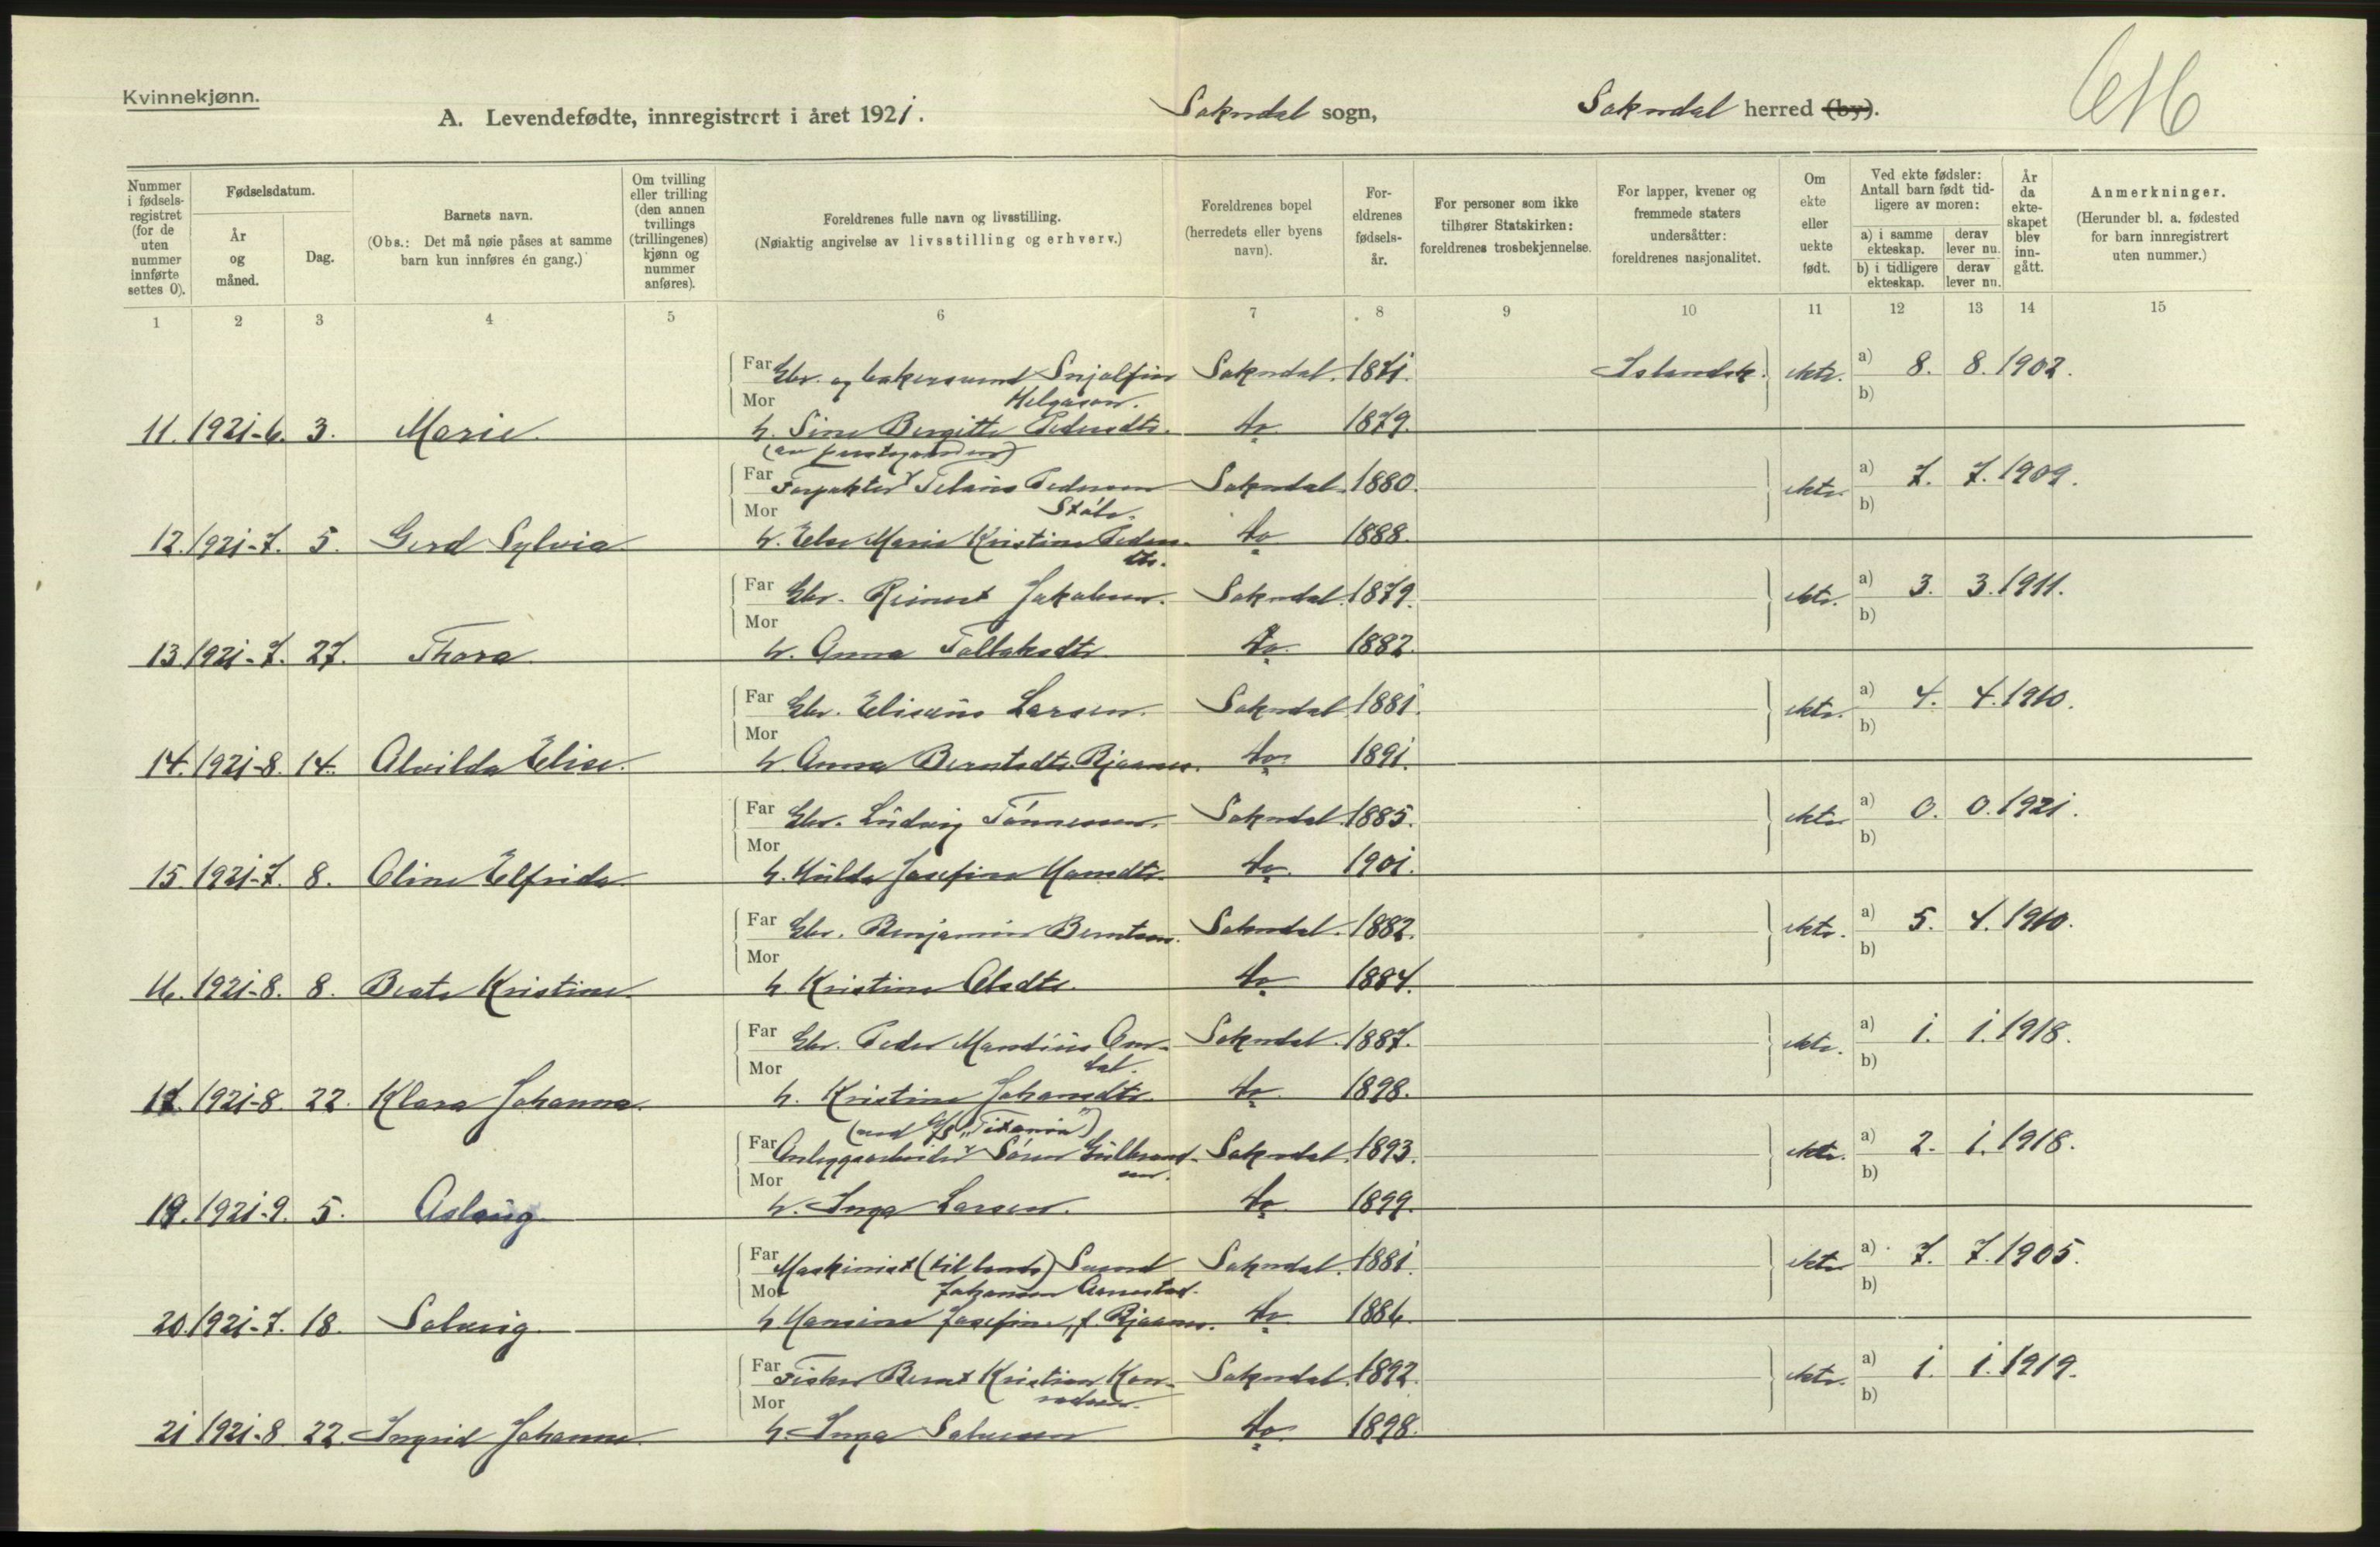 Kvinnekjønn.
A. Levendefødte, innregistrert i året 1921.
Sokndal sogn,
Sokndal herred (by).
Nummer i fødselsregistret (for de uten nummer innførte settes 0).
Fødselsdatum.
År og måned.
Dag.
Barnets navn.
(Obs.: Det må nøie påses at samme barn kun innføres én gang.)
Om tvilling eller trilling (den annen tvillings (trillingenes) kjønn og nummer anføres).
Foreldrenes fulle navn og livsstilling.
(Nøiaktig angivelse av livsstilling og erhverv.)
Foreldrenes bopel (herredets eller byens navn).
Foreldrenes fødselsår.
For personer som ikke tilhører Statskirken: foreldrenes trosbekjennelse.
For lapper, kvener og fremmede staters undersåtter: foreldrenes nasjonalitet.
Om ekte eller uekte født.
Ved ekte fødsler: Antall barn født tidligere av moren:
a) i samme ekteskap.
derav lever nu.
b) i tidligere ekteskap.
derav lever nu.
År da ekteskapet blev inngått.
Anmerkninger.
(Herunder bl. a. fødested for barn innregistrert uten nummer.)
1 2 3 4 5 6 7 8 9 10 11 12 13 14 15
Far Gbr. og Snjolfur Helgason. Sokndal. 1871. Islandsk. ekte. a) 8. 8. 1902.
Mor b)
11. 1921-6. 3. Marie. h. Sine Bergitte Pedersdtr. do 1879.
Far Forpakter Pedersen Sokndal. 1880. ekte. a) 7. 7. 1909.
Mor b)
12. 1921-7. 5. Gerd Sylvia. h. Else Marie Kristine Pedersdtr. do 1888.
Far Gbr. Reinert Jakobsen. Sokndal. 1879. ekte. a) 3. 3. 1911.
Mor b)
13 1921-7. 27. Thora. h. Anna Tollaksdtr. do 1882.
Far Gbr. Eliseüs Larsen. Sokndal. 1881. ekte. a) 4. 4. 1910.
Mor b)
14. 1921-8. 14. Alvilda Elise. h. Anna Berntsdtr. do 1891.
Far Gbr. Lüdvig Tönnesen. Sokndal. 1885. ekte a) 0. 0. 1921.
Mor b)
15. 1921-7. 8. Oline Elfrida. h. Hülda Josefine Hansdtr. do 1901.
Far Gbr. Benjamin Berntsen. Sokndal. 1882. ekte. a) 5. 4. 1910.
Mor b)
16. 1921-8. 8. Beate Kristine. h. Kristine Olsdtr. do 1884.
Far Gbr. Peder Mandiüs Omdal. Sokndal. 1887. ekte. a) 1. 1. 1918.
Mor b)
17. 1921-8. 22. Klara Johanna. h. Kristine Johansdtr. do 1898.
(ved A/S "Titania")
Far Anleggsarbeider Sören Gülbrandsen. Sokndal. 1893. ekte. a) 2. 1. 1918.
Mor b)
19. 1921-9. 5. Aslaüg. h. Inga Larsen. do 1899.
Far Maskinist (til lands) Johansen Sokndal. 1881. ekte a) 7. 7. 1905.
Mor b)
20. 1921-7. 18. Solveig. h. Josefine, f. do 1886.
Far Fisker Bernt Kristian Konradsen. Sokndal. 1892. ekte. a) 1. 1. 1919.
Mor b)
21 1921-8. 22. Ingrid Johanne. h. Inga Salvesen do 1898.